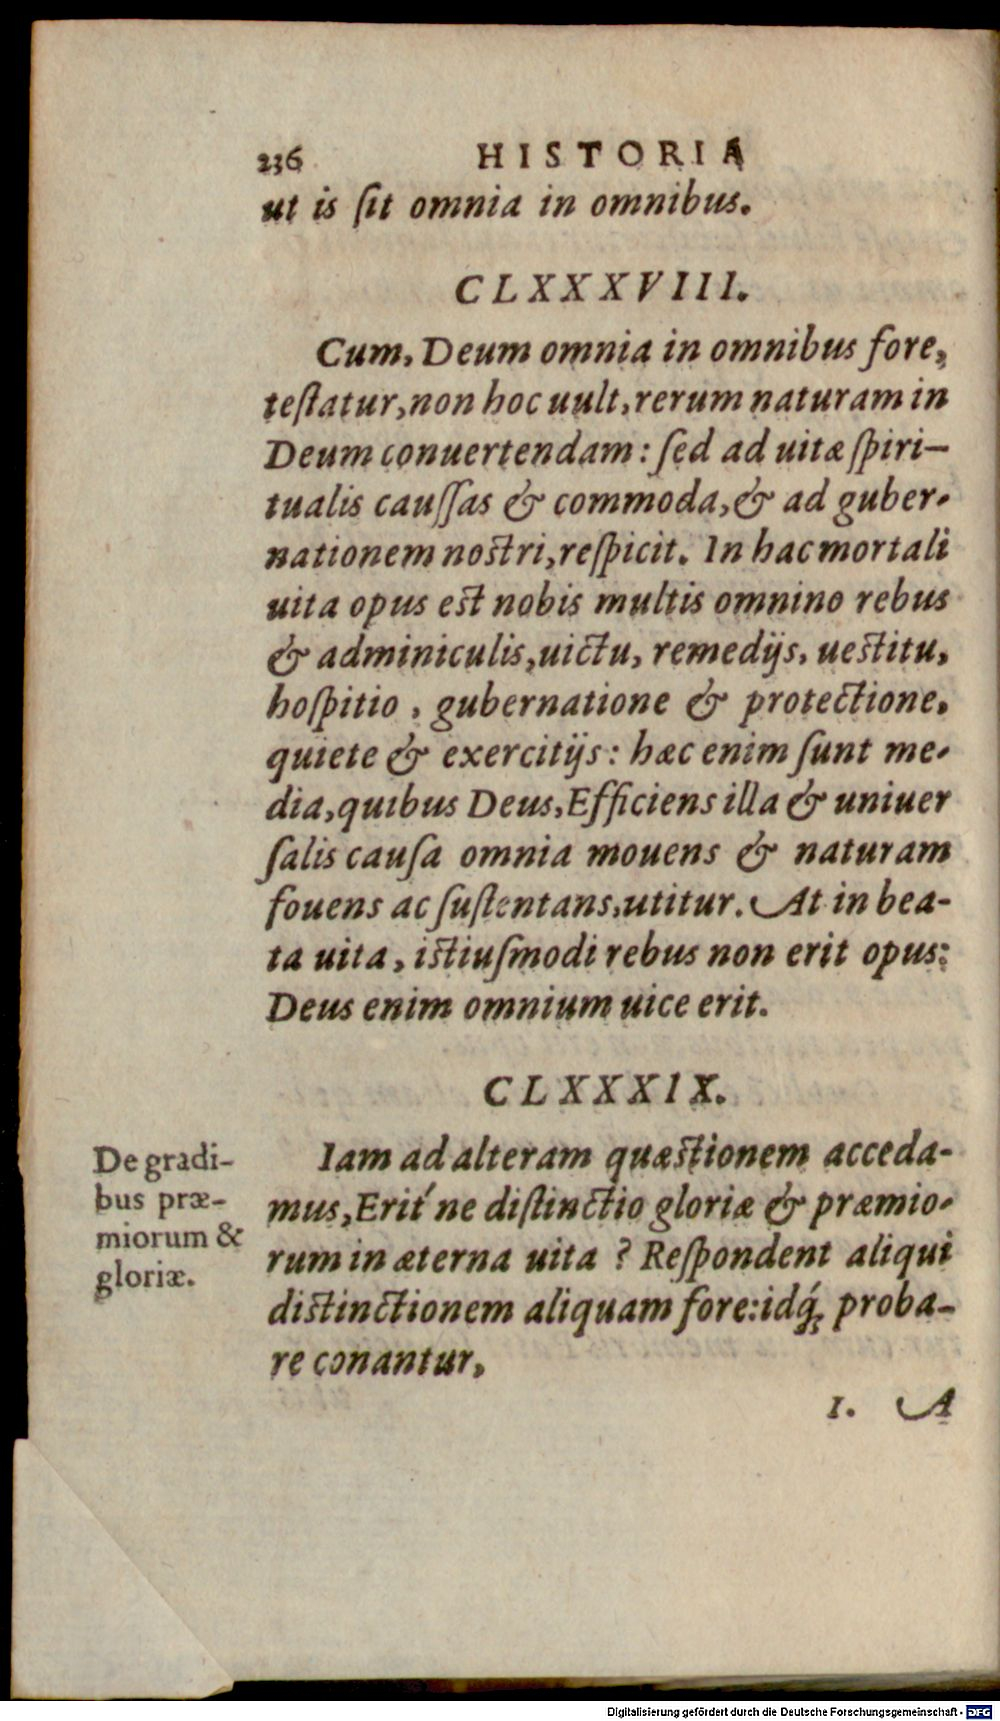 236 HISTORIA
ut is ſit omnia in omnibus.
CLXXXVIII.
Cum, Deum omnia in omnibus fore,
teſtatur, non hoc uult, rerum naturam in
Deum conuertendam: ſed ad uitæ ſpiri-
tualis cauſſas & commoda, & ad guber-
nationem noſtri, reſpicit. In hac mortali
uita opus eſt nobis multis omnino rebus
& adminiculis, uictu, remedijs, ueſtitu,
hoſpitio, gubernatione & protectione,
quiete & exercitijs: hæc enim ſunt me-
dia, quibus Deus, Efficiens illa & uniuer
ſalis cauſa omnia mouens & naturam
fouens ac ſuſtentans, utitur. At in bea-
ta uita, iſtiuſmodi rebus non erit opus:
Deus enim omnium uice erit.
CLXXXIX.
De gradi-
bus præ-
miorum &
gloriæ.
Iam ad alteram quæſtionem acceda-
mus, Erit́ ne diſtinctio gloriæ & præmio-
rum in æterna uita? Reſpondent aliqui
diſtinctionem aliquam fore: idq́; proba-
re conantur,
1. A
Digitalisierung gefördert durch die Deutsche Forschungsgemeinschaft - DFG